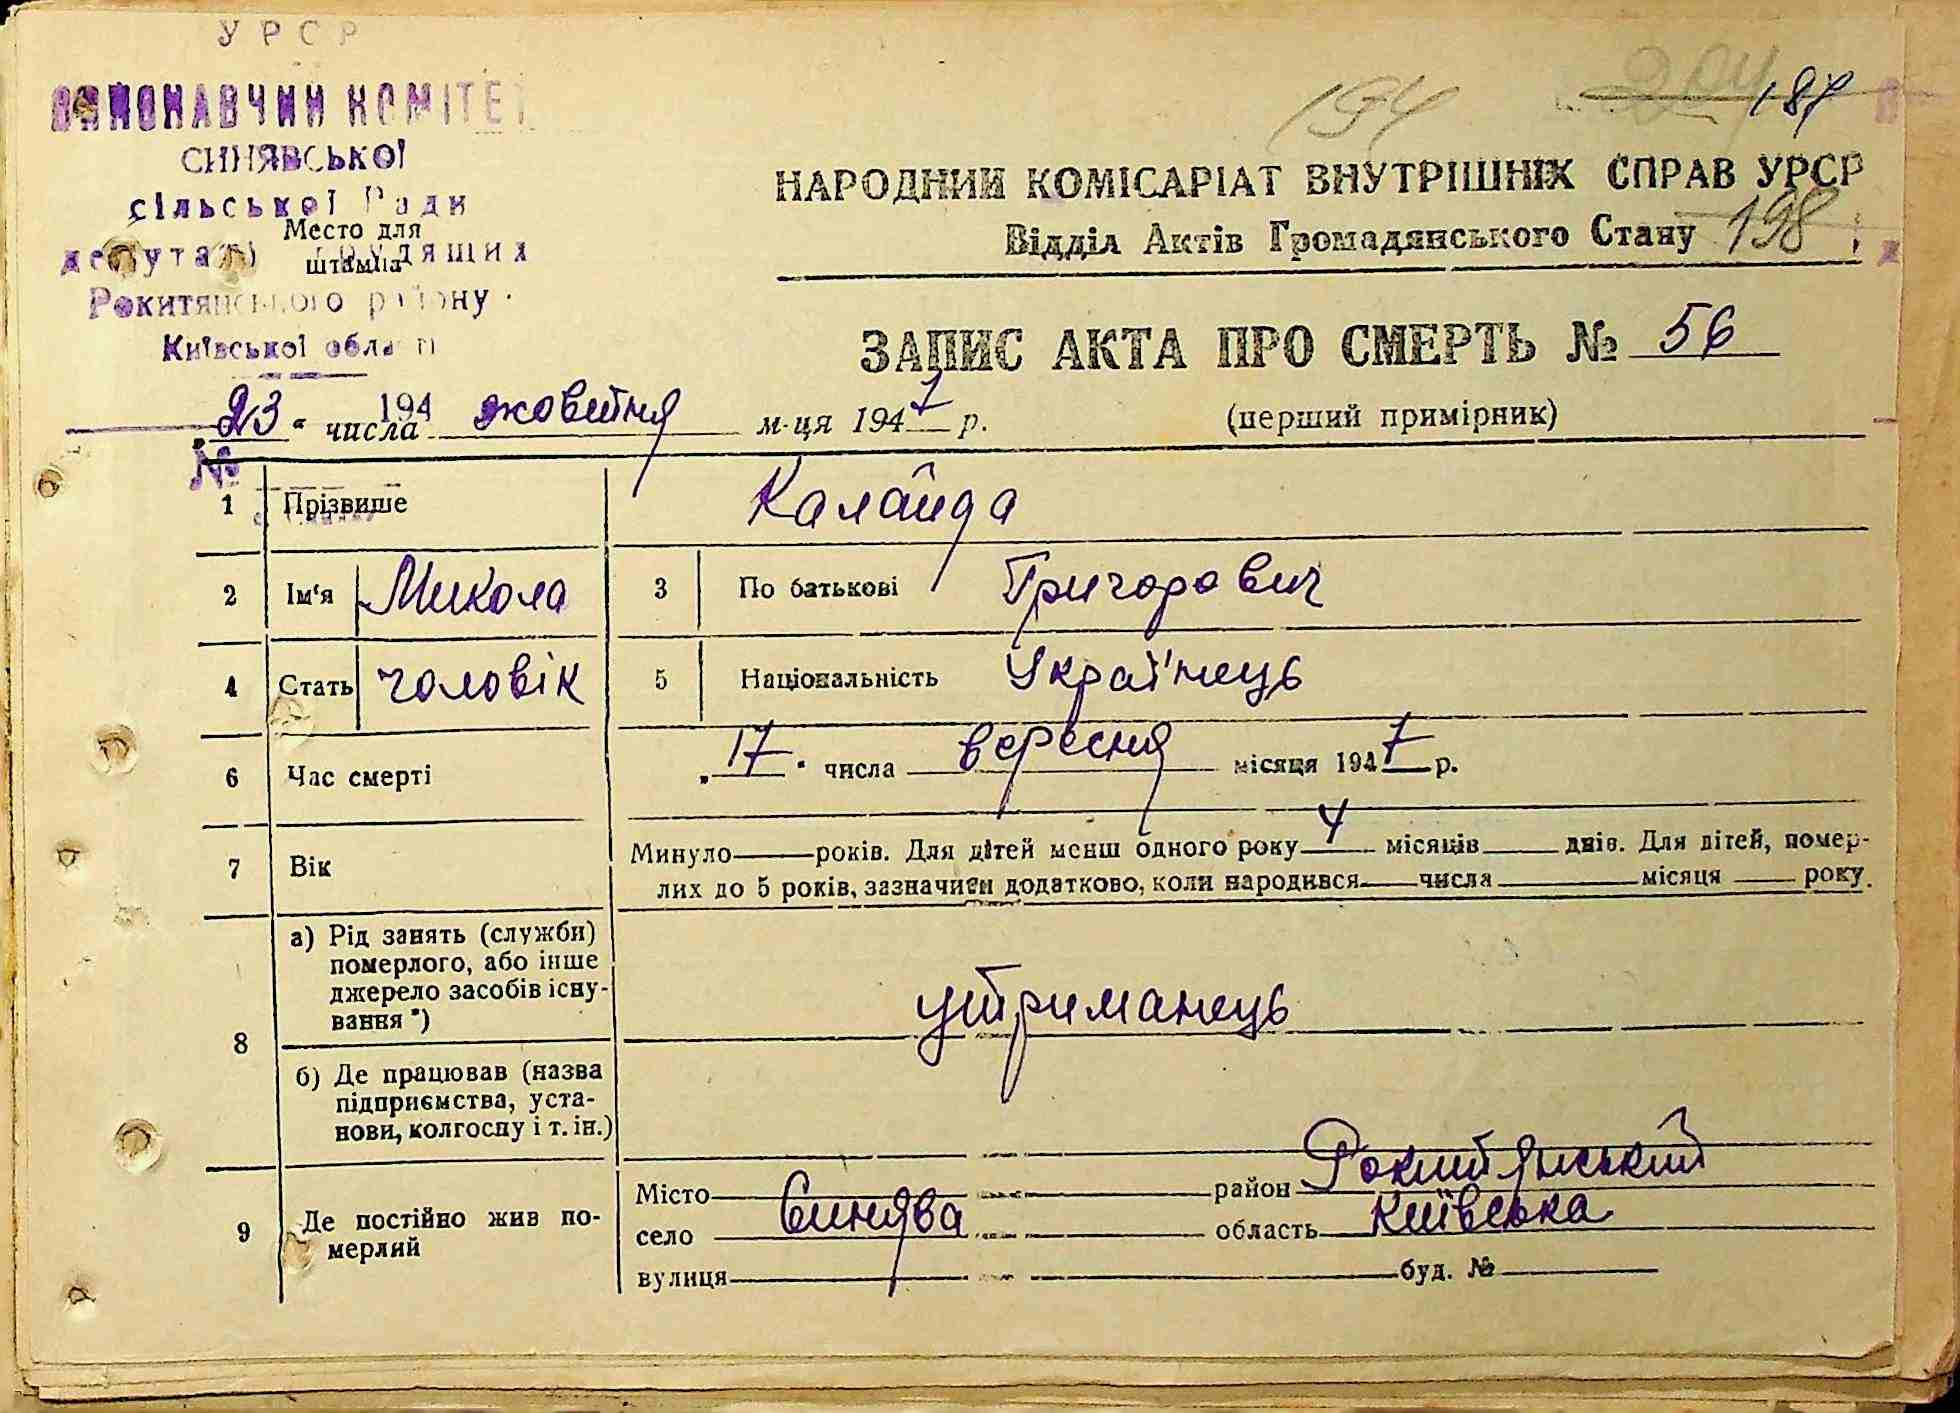 УРСР
ВИКОНАВЧИЙ КОМІТЕТ
СИНЯВСЬКОЇ
сільської Ради
Место для
депутатів трудящих
штампа
Рокитянського району
Київської області
194
№
194 204 187
НАРОДНИЙ КОМІСАРІАТ ВНУТРІШНІХ СПРАВ УРСР
Відділ Актів Громадянського Стану 198
ЗАПИС АКТА ПРО СМЕРТЬ № 56
„23" числа жовтня м-ця 1947 р. (перший примірник)
1 Прізвише Калайда
2 Ім'я Микола 3 По батькові Григорович
4 Стать чоловік 5 Національність Українець
6 Час смерті „17" числа вересня місяця 1947 р.
7 Вік Минуло — років. Для дітей менш одного року 4 місяців — днів. Для дітей, помер-
лих до 5 років, зазначити додатково, коли народився — числа — місяця — року.
8 а) Рід занять (служби)
померлого, або інше
джерело засобів існу-
вання *) утриманець
б) Де працював (назва
підприємства, уста-
нови, колгоспу і т. ін.)
9 Де постійно жив по-
мерлий
Місто — район Рокитянський
село Синява область Київська
вулиця — буд. № —